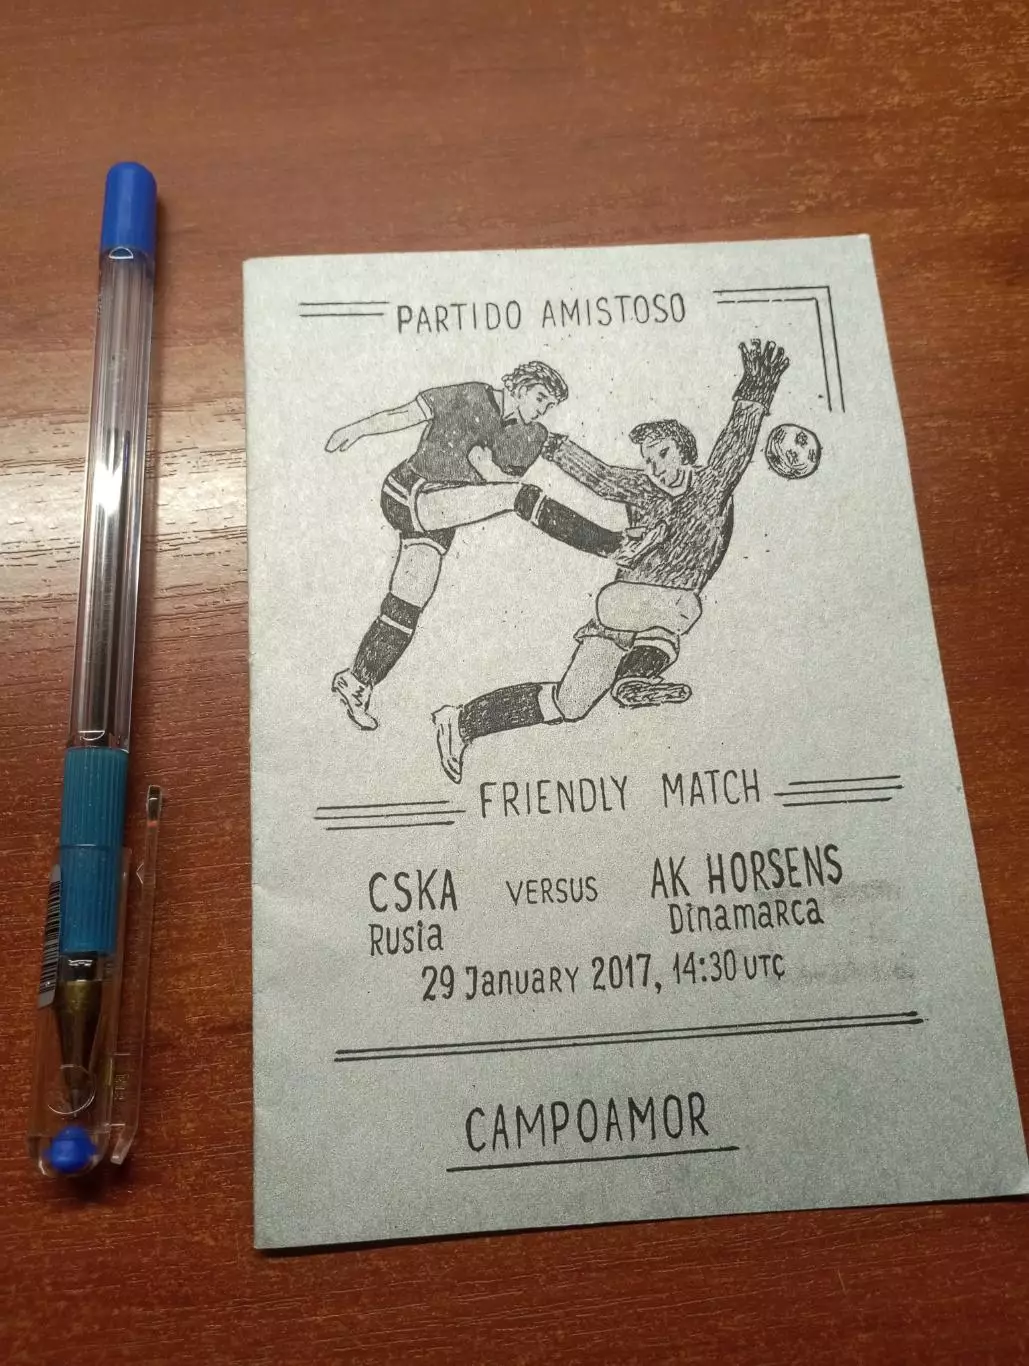 PARTIDO AMISTOSO
FRIENDLY MATCH
CSKA VERSUS AK HORSENS
Rusia Dinamarca
29 January 2017, 14:30 UTC
CAMPOAMOR